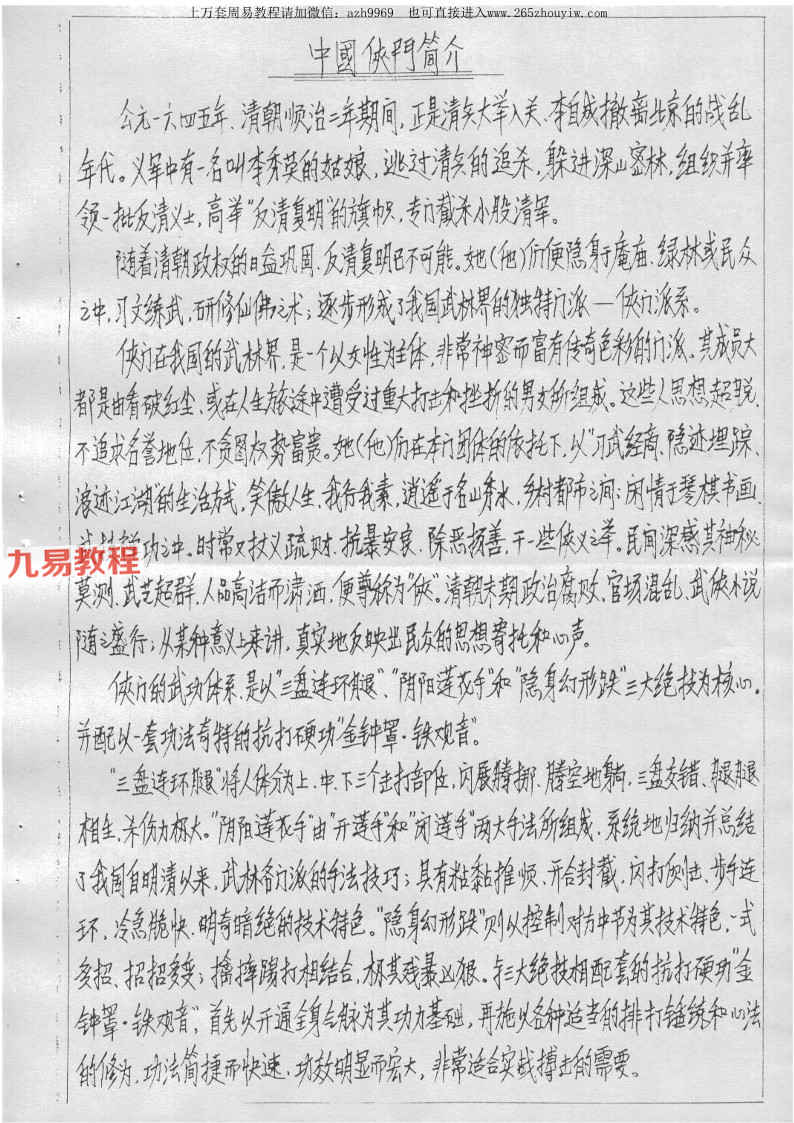 上万套周易教程请加微信：azh9969　也可直接进入www.265zhouyiw.com
中國侠門简介
公元一六四五年、清朝顺治二年期间，正是清兵大举入关、李自成撤离北京的战乱
年代。义军中有一名叫李秀英的姑娘，逃过清兵的追杀，躲进深山密林，组织并率
领一批反清义士，高举"反清复明"的旗帜，专门截杀小股清军。
随着清朝政权的日益巩固、反清复明已不可能。她(他)们便隐身于庵庙、绿林或民众
之中，习文练武，研修仙佛之术；逐步形成了我国武林界的独特门派—侠门派系。
侠门在我国的武林界，是一个以女性为主体，非常神密而富有传奇色彩的门派。其成员大
都是由看破红尘、或在人生旅途中遭受过重大打击和挫折的男女所组成。这些人思想超脱、
不追求名誉地位，不贪图权势富贵。她(他)们在本门团体的依托下，以"习武经商、隐迹埋踪、
浪迹江湖"的生活方式，笑傲人生、我行我素，逍遥于名山秀水，乡村都市之间；闲情于琴棋书画、
功之中。时常又扙义疏财、抗暴安良、除恶扬善，干一些侠义之举。民间深感其神秘
莫测、武艺超群、人品高洁而潇洒，便尊称为"侠"。清朝末期政治腐败、官场混乱、武侠小说
随之盛行；从某种意义上来讲，真实地反映出民众的思想寄托和心声。
侠门的武功体系，是以"三盘连环腿"、"阴阳莲花手"和"隐身幻形跌"三大绝技为核心。
并配以一套功法奇特的抗打硬功"金钟罩·铁观音"。
"三盘连环腿"将人体分为上、中、下三个击打部位，闪展腾挪、腾空地躺，三盘交错、腿腿
相生，杀伤力极大。"阴阳莲花手"由"开莲手"和"闭莲手"两大手法所组成，系统地归纳并总结
了我国自明清以来，武林各门派的手法技巧；具有粘黏推顺、开合封截，闪打侧击、步手连
环、冷急脆快、明奇暗绝的技术特色。"隐身幻形跌"则以控制对方中节为其技术特色，一式
多招、招招多变；擒摔踢打相结合，极其残暴凶狠。与三大绝技相配套的抗打硬功"金
钟罩·铁观音"，首先以开通全身气脉为其功力基础，再施以各种适当的排打锤练和心法
的修为，功法简捷而快速，功效明显而宏大，非常适合实战搏击的需要。
九易教程